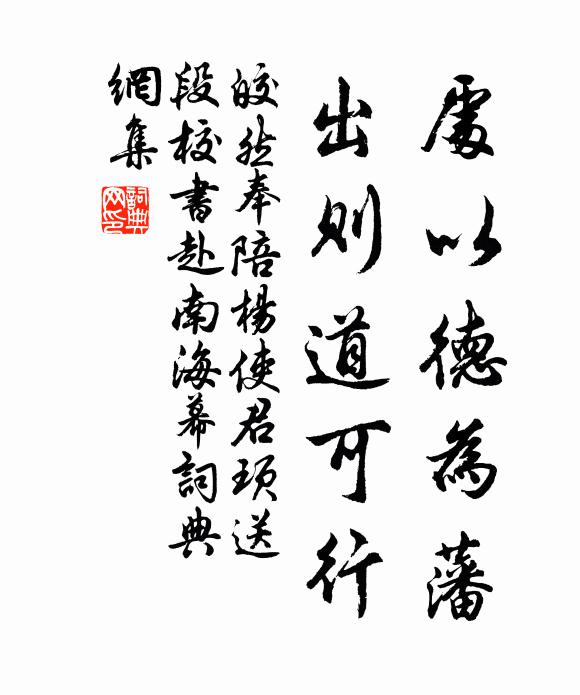 處以德為藩
出則道可行
皎然奉陪楊使君頊送
段校書赴南海幕詞典
網集
詞典網印